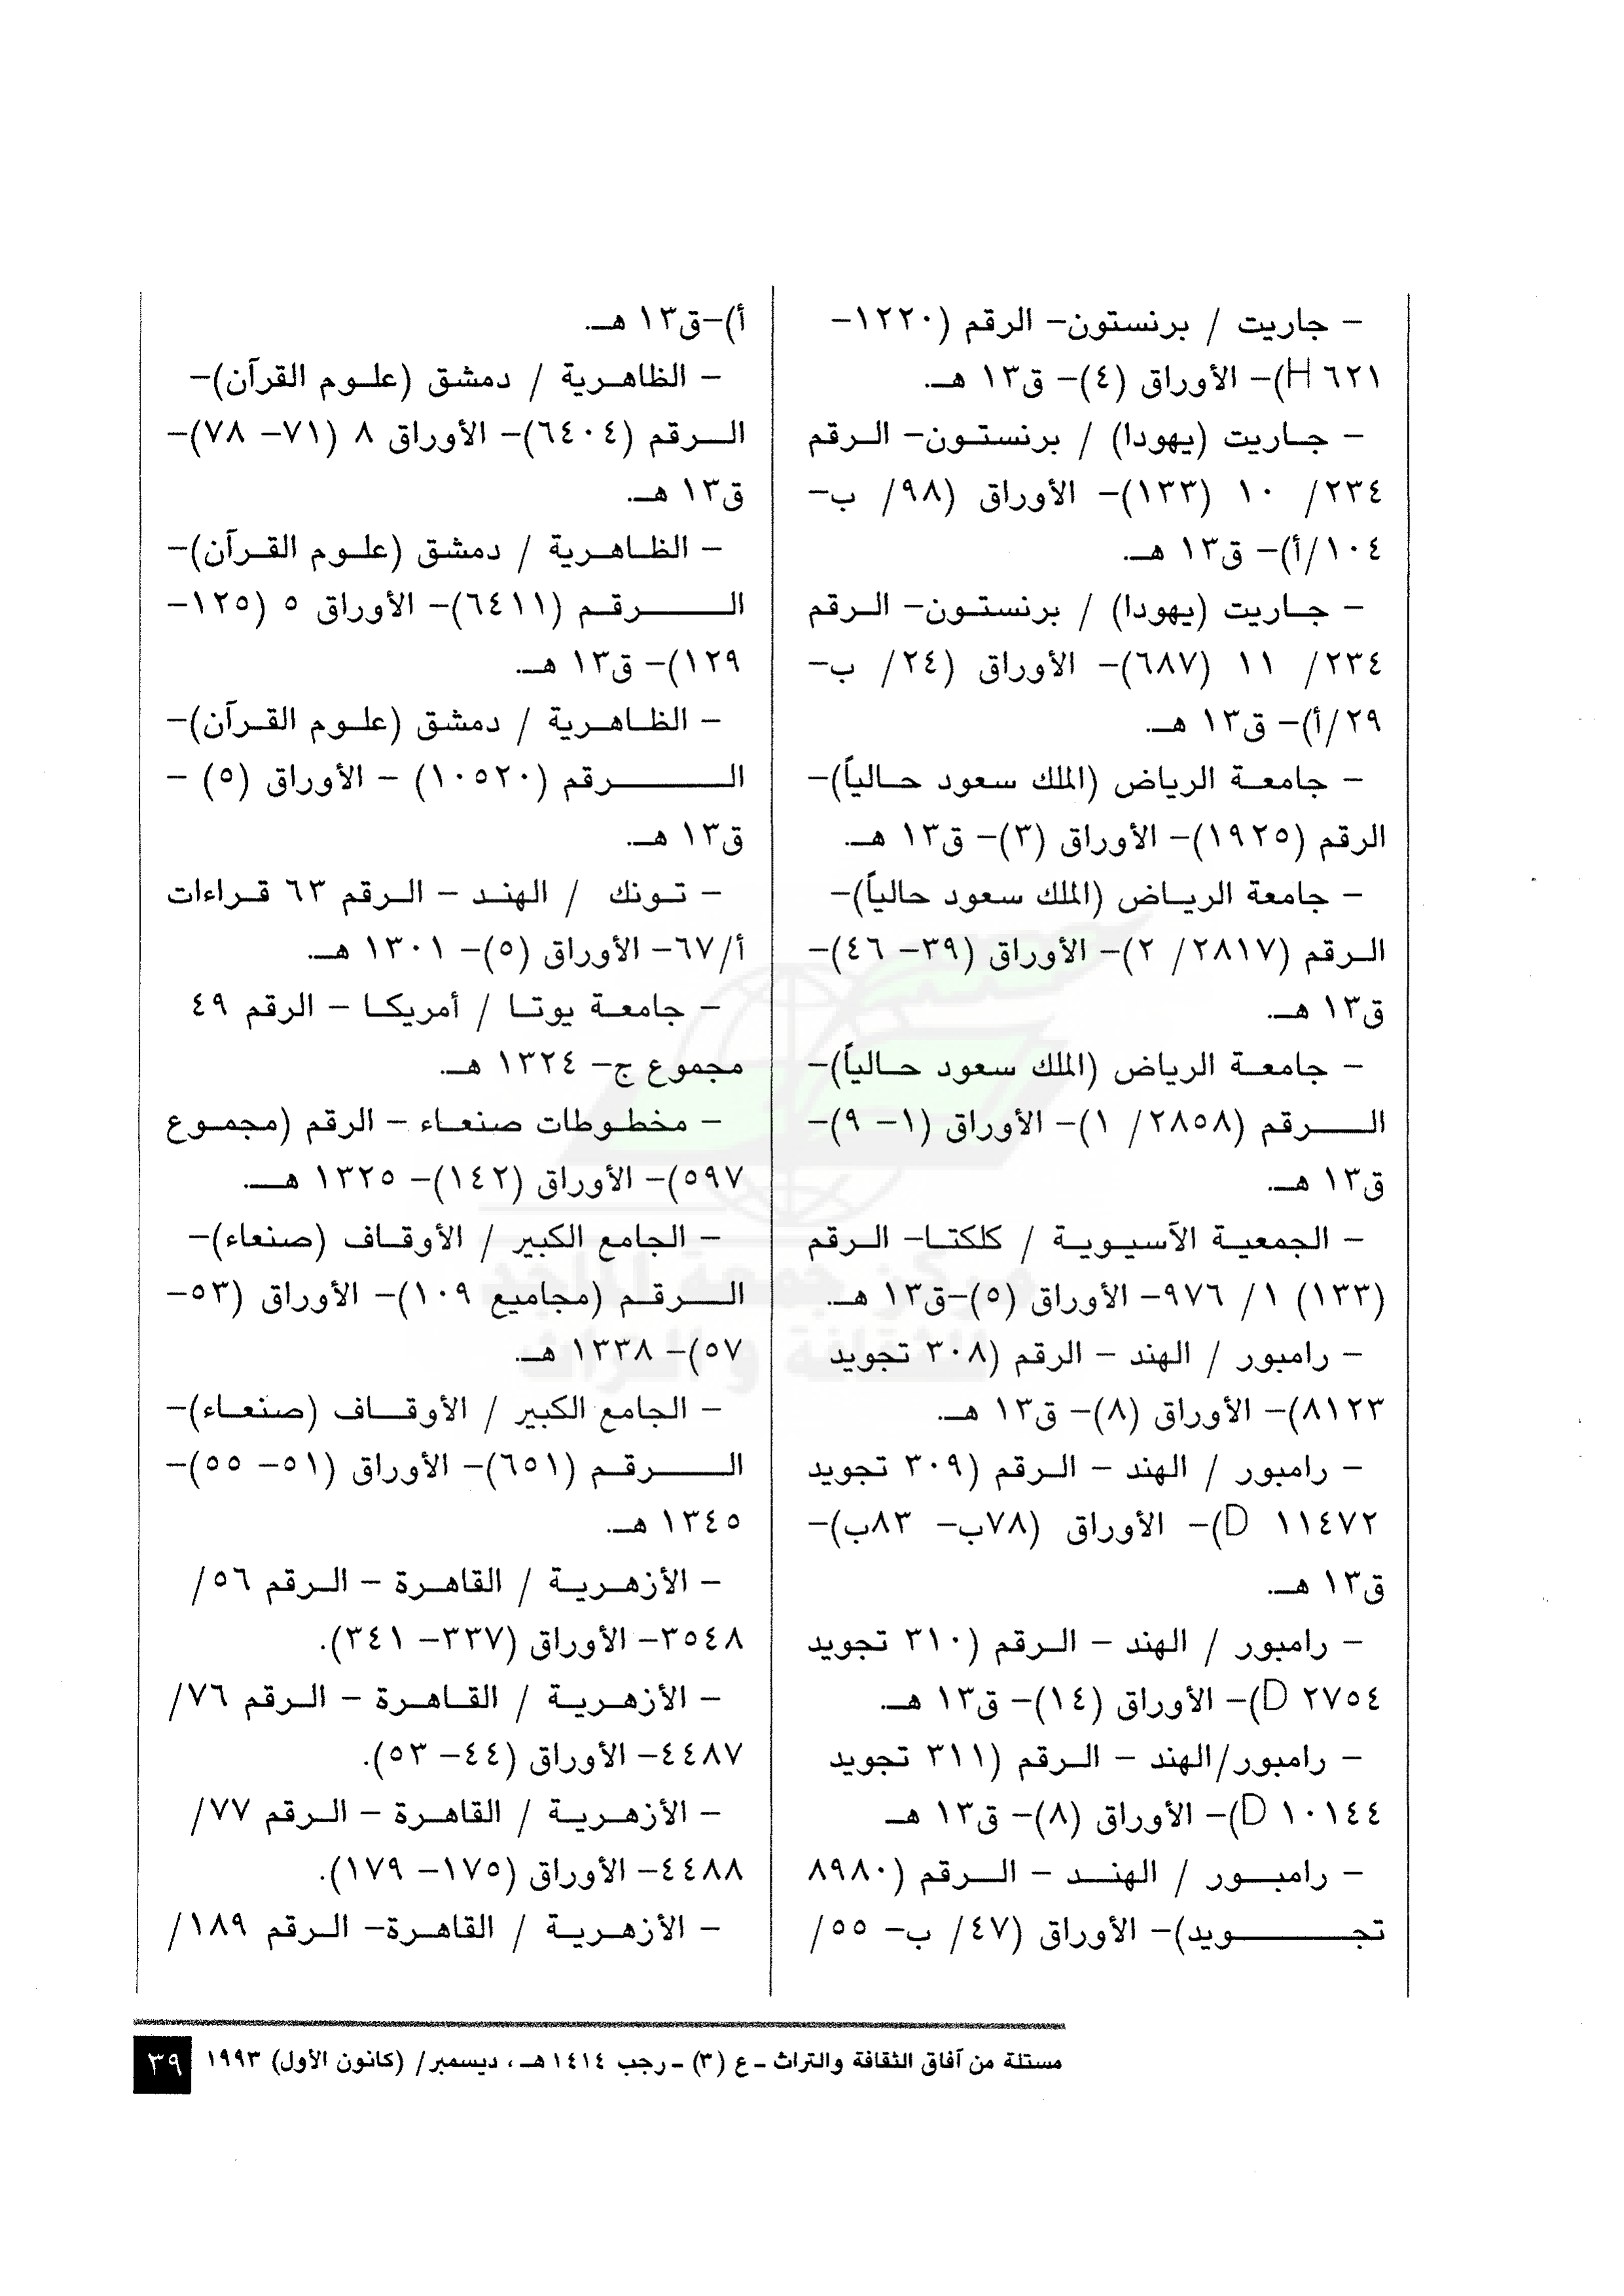 – جاريت / برنستون– الرقم (١٢٢٠–
٦٢١ H)– الأوراق (٤)– ق١٣ هـ.
– جاريت (يهودا) / برنستون– الرقم
٢٣٤/ ١٠ (١٣٣)– الأوراق (٩٨/ ب–
١٠٤/أ)– ق١٣ هـ.
– جاريت (يهودا) / برنستون– الرقم
٢٣٤/ ١١ (٦٨٧)– الأوراق (٢٤/ ب–
٢٩/أ)– ق١٣ هـ.
– جامعة الرياض (الملك سعود حالياً)–
الرقم (١٩٢٥)– الأوراق (٣)– ق١٣ هـ.
– جامعة الرياض (الملك سعود حالياً)–
الرقم (٢٨١٧/ ٢)– الأوراق (٣٩– ٤٦)–
ق١٣ هـ.
– جامعة الرياض (الملك سعود حالياً)–
الرقم (٢٨٥٨/ ١)– الأوراق (١– ٩)–
ق١٣ هـ.
– الجمعية الآسيوية / كلكتا– الرقم
(١٣٣) ١/ ٩٧٦– الأوراق (٥)–ق١٣ هـ.
– رامبور / الهند – الرقم (٣٠٨ تجويد
٨١٢٣)– الأوراق (٨)– ق١٣ هـ.
– رامبور / الهند – الرقم (٣٠٩ تجويد
١١٤٧٢ D)– الأوراق (٧٨ب– ٨٣ب)–
ق١٣ هـ.
– رامبور / الهند – الرقم (٣١٠ تجويد
٢٧٥٤ D)– الأوراق (١٤)– ق١٣ هـ.
– رامبور/الهند – الرقم (٣١١ تجويد
١٠١٤٤ D)– الأوراق (٨)– ق١٣ هـ
– رامبور / الهند – الرقم (٨٩٨٠
تجويد)– الأوراق (٤٧/ ب– ٥٥/
أ)–ق١٣ هـ.
– الظاهرية / دمشق (علوم القرآن)–
الرقم (٦٤٠٤)– الأوراق ٨ (٧١– ٧٨)–
ق١٣ هـ.
– الظاهرية / دمشق (علوم القرآن)–
الرقم (٦٤١١)– الأوراق ٥ (١٢٥–
١٢٩)– ق١٣ هـ.
– الظاهرية / دمشق (علوم القرآن)–
الرقم (١٠٥٢٠) – الأوراق (٥) –
ق١٣ هـ.
– تونك / الهند – الرقم ٦٣ قراءات
أ/٦٧– الأوراق (٥)– ١٣٠١ هـ.
– جامعة يوتا / أمريكا – الرقم ٤٩
مجموع ج– ١٣٢٤ هـ.
– مخطوطات صنعاء – الرقم (مجموع
٥٩٧)– الأوراق (١٤٢)– ١٣٢٥ هـ.
– الجامع الكبير / الأوقاف (صنعاء)–
الرقم (مجاميع ١٠٩)– الأوراق (٥٣–
٥٧)– ١٣٣٨ هـ.
– الجامع الكبير / الأوقاف (صنعاء)–
الرقم (٦٥١)– الأوراق (٥١– ٥٥)–
١٣٤٥ هـ.
– الأزهرية / القاهرة – الرقم ٥٦/
٣٥٤٨– الأوراق (٣٣٧– ٣٤١).
– الأزهرية / القاهرة – الرقم ٧٦/
٤٤٨٧– الأوراق (٤٤– ٥٣).
– الأزهرية / القاهرة – الرقم ٧٧/
٤٤٨٨– الأوراق (١٧٥– ١٧٩).
– الأزهرية / القاهرة– الرقم ١٨٩/
مركز جمعة الماجد
للثقافة والتراث
مستلة من آفاق الثقافة والتراث ـ ع (٣) ـ رجب ١٤١٤ هـ ، ديسمبر/ (كانون الأول) ١٩٩٣
٣٩